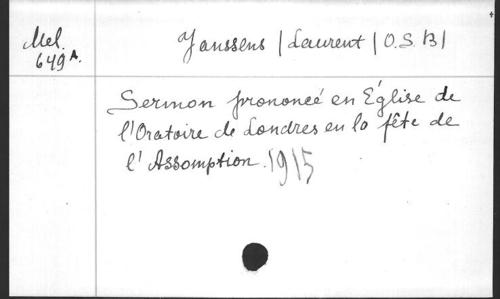 Mel.
649 A.
Janssens | Laurent | O.S.B |
Sermon prononcé en Église de
l'Oratoire de Londres en la fête de
l'Assomption. 1915